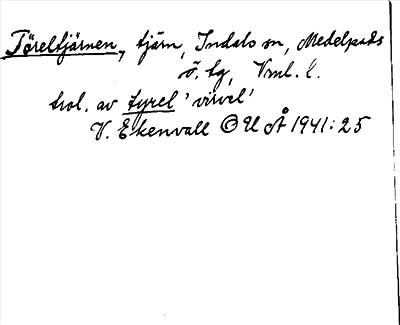 Töreltjärnen, tjärn, Indals sn, Medelpads
ö. tg, Vnl. l.
trol. av tyrel 'virvel'
V. Ekenvall OUÅ 1941:25